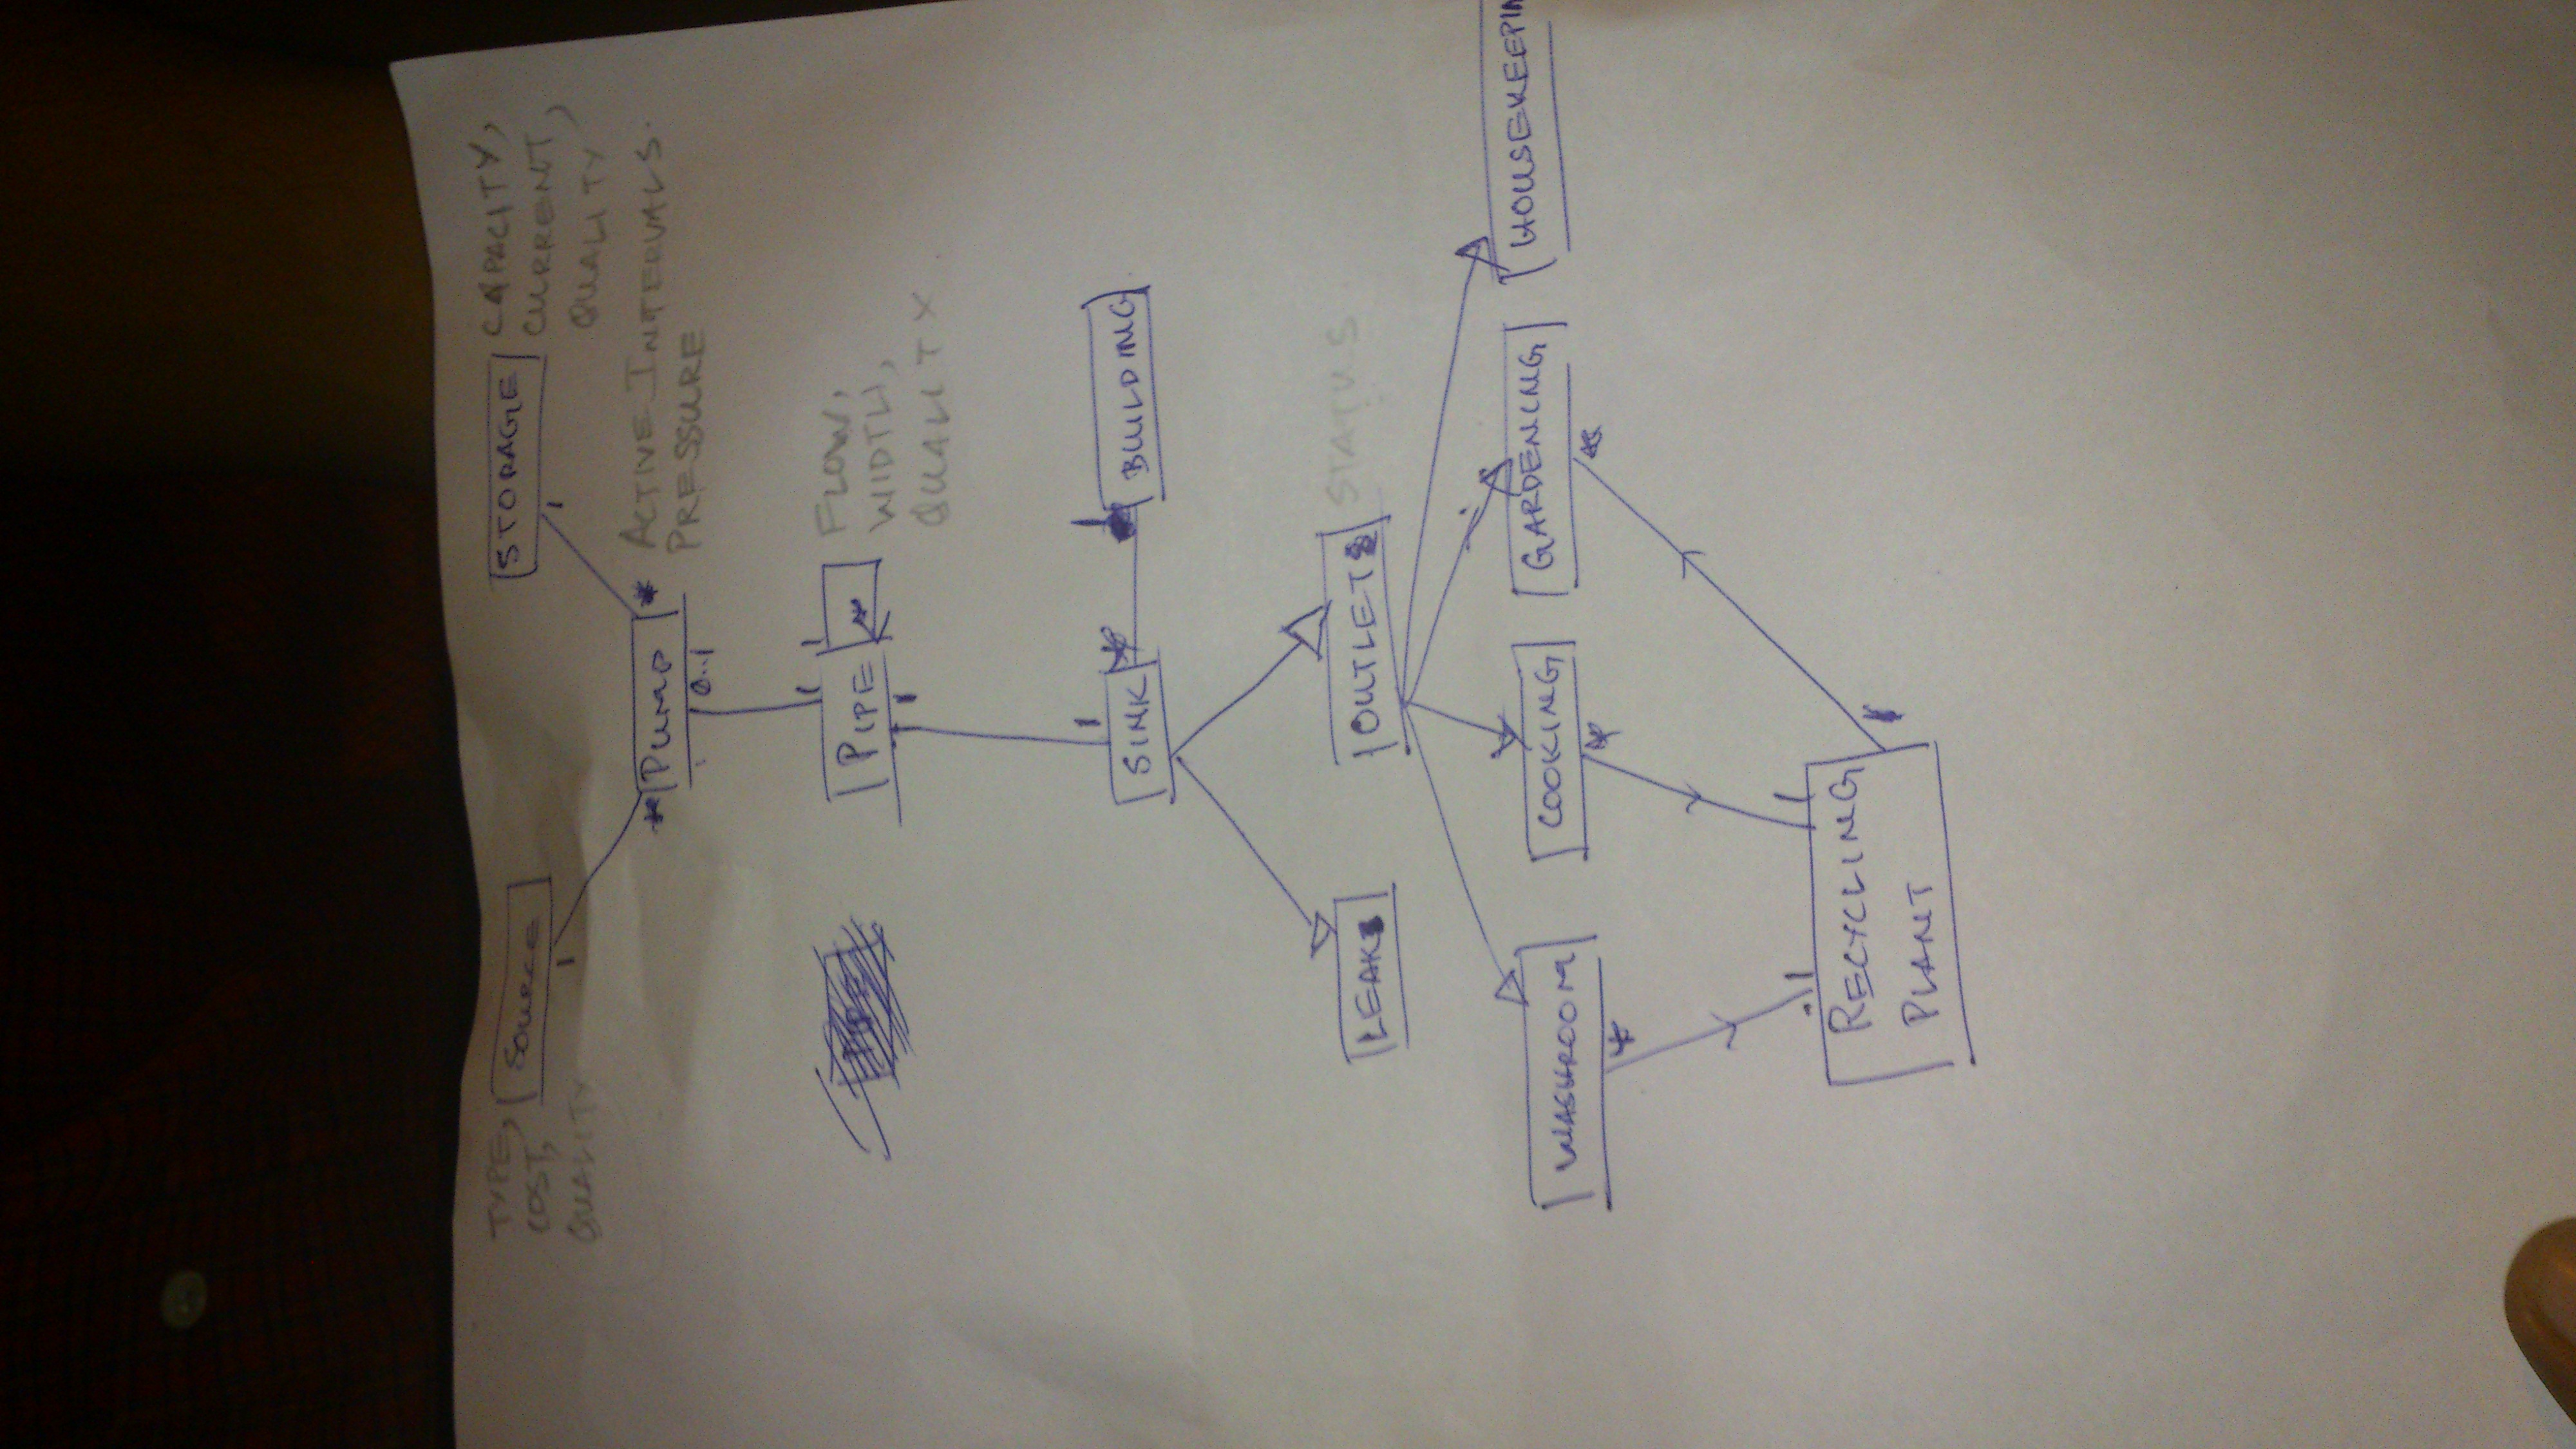 TYPE,
COST,
QUALITY
SOURCE
1
STORAGE
1
CAPACITY,
CURRENT,
QUALITY
* PUMP *
0..1
ACTIVE INTERVALS.
PRESSURE
1 1
PIPE *
1
FLOW,
WIDTH,
QUALITY
1
SINK * 1 BUILDING
LEAK
OUTLET
STATUS
WASHROOM
COOKING
GARDENING
HOUSEKEEPIN
* * *
1 1
RECYCLING
PLANT
1